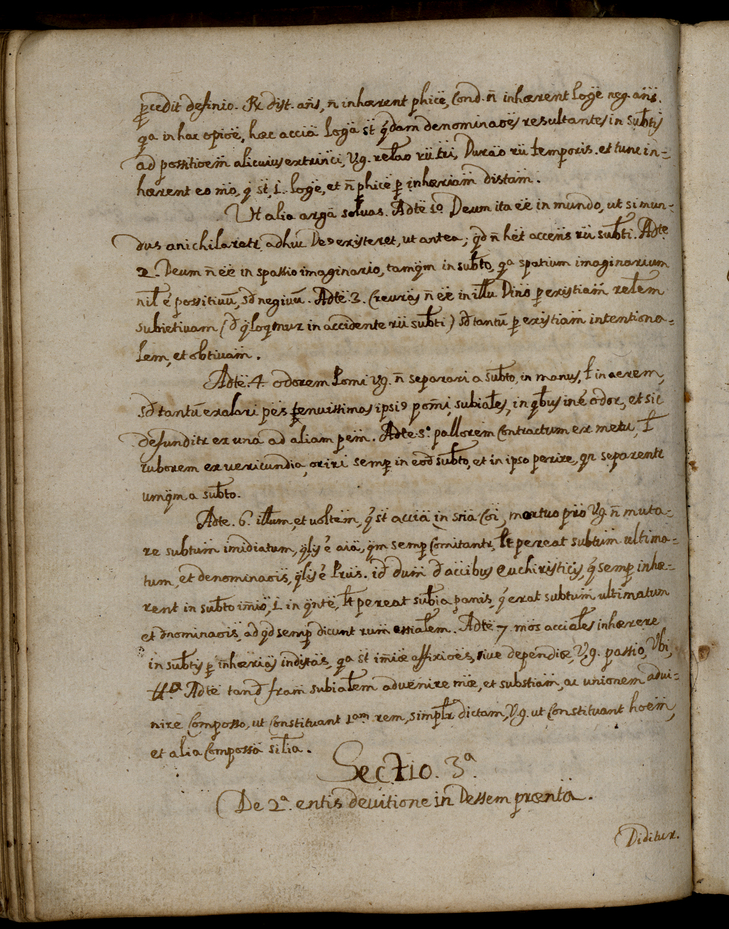 p̄cedit definio. R̃ dist. añs, ñ inhærent phicè, Cond. ñ inhærent Logè neg. añs.
qa in hac opioè, hæc accià Logà st̃ q̃dam denominaoès resultantes in subt̃is
ad possitioem alicuius extrinci, Vg. relao
temporis. et tunc in=
hærent eo mo, q̃ st̃, Logè, et ñ phicè p̄ inhæriam distam.
Ut alia argà solvas. Adtè 1o Deum ita èè in mundo, ut si mun-
dus anichilaretr adhuc De9 existeret, ut antea; qd ñ hèt accens subti. Adtè
2. Deum ñ èè in spatio imaginario, tamqm in subto, qa spatium imaginarium
nil è possitivũ, sd negivũ. Adtè 3. ñ èè in illu Dino p existiam
subietivam in accidente subti) sd tantũ p existiam intentiona=
lem, et obtivam.
Adtè. 4. odorem Pomi Vg. ñ separari a subto, in manus, ł in aerem,
sd tantũ exalari pès tenuissimas ipsi9 pomi, subiales, in qbus inè odor, et sic
defunditr ex una ad aliam pem. Adtè 5o pallorem Contractum ex metu, ł
ruborem ex vericundia, oriri semp in eod subto, et in ipso perire, qn separentr
umqm a subto.
Adtè. 6. illum, et voltem, q̃ st̃ accià in Coi, mortuo Vg. ñ muta-
re subtum imidiatum, qlis è aià, qm semp Comitantr, lt pereat subtum ultima=
tum, et denominaois, qlis è id dum d accibus euchiristicis, q̃ semp inhæ-
rent in subto imio, ł in qntè, lt pereat subià panis, q̃ erat subtum ultimatum
et dnominaois, ad qd semp dicunt essialem. Adtè 7 mos acciales inhærere
in subtis p inhærias indistas, qa st̃ imiæ affixioès, sive dependiæ, Vg. passio, Vbi,
Adtè tand fram subialem advenire mæ, et substiam, ac unionem advi-
nire Composso, ut Constituant 1am rem, simplr dictam, Vg. ut Constituant hoèm,
et alia Compossa silia.
Sectio. 3a.
De 2a. entis devitione in Dessem præntà.
Diditur.